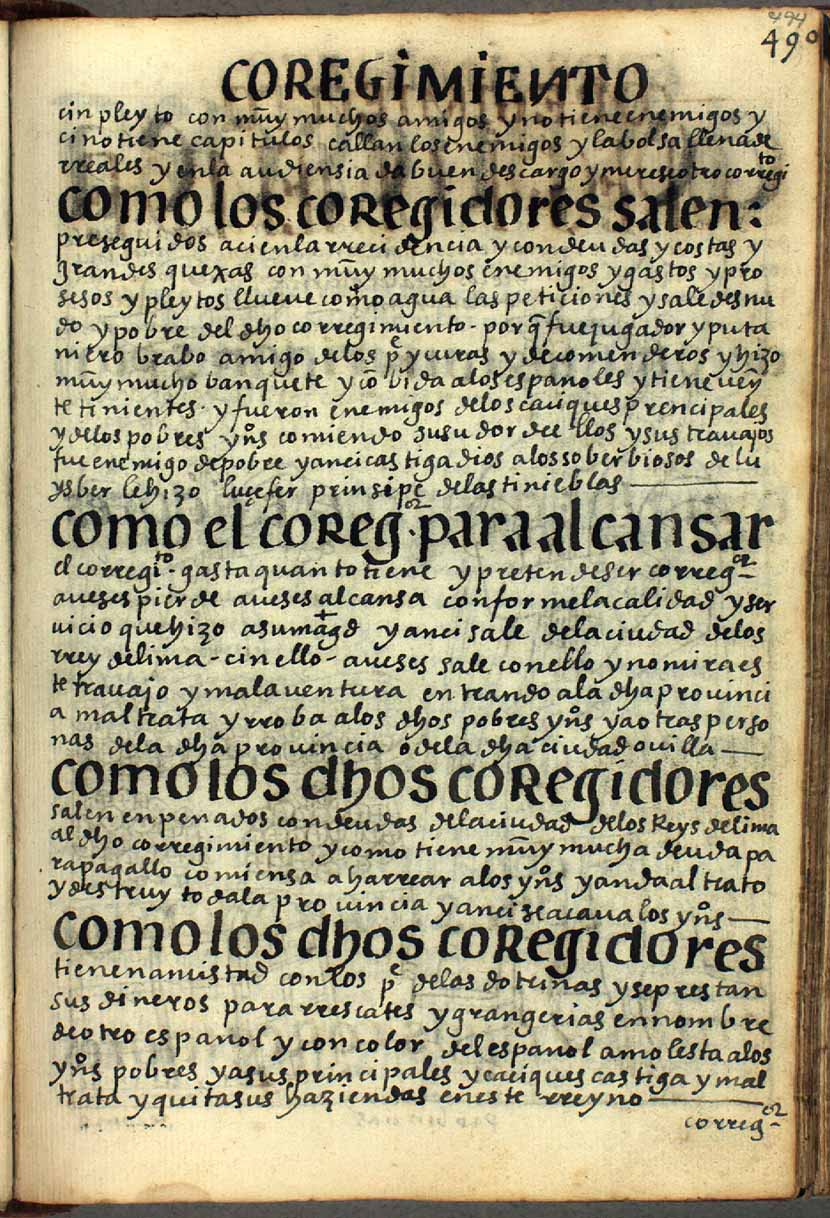 494
490
COREGIMIENTO
cin pleyto con muy muchos amigos y no tiene enemigos y
ci no tiene capitulos callan los enemigos y la bolsa llena de
rreales y en la audiensia da buen descargo y merese otro corregito
como los coregidores salen:
preseguidos aci en la rrecidencia y con deudas y costas y
grandes quexas con muy muchos enemigos y gastos y pro
sesos y pleytos llueve como agua las peticiones y sale desnu
do y pobre del dho corregimiento - por q̃ fue jugador y puta
niero brabo amigo de los pe y curas y de comenderos y hizo
muy mucho banquete y cõbida a los españoles y tiene veyn
te tinientes - y fueron enemigos de los caciques prencipales
y de los pobres yños comiendo su sudor dee llos y sus trauajos
fue enemigo de pobre y anci castiga dios a los soberbiosos de lu
ysber le hizo luçefer prinsipe de las tinieblas
como el coregor para alcansar
el corregito - gasta quanto tiene y pretende ser corregor
a ueses pierde a ueses alcansa conforme la calidad y ser
uicio que hizo a su magd y anci sale de la ciudad de los
rrey de lima - cin ello - aueses sale con ello y no mira es
te trauajo y mala uentura entrando a la dha prouinci
a maltrata y rroba a los dhos pobres yños y a otras perso
nas de la dha prouincia o de la dha ciudad o uilla
como los dhos coregidores
salen enpeñados con deudas de la ciudad de los Reys de lima
al dho corregimiento y como tiene muy mucha deuda pa
ra pagallo comiensa a harrear a los yños y anda al trato
y destruy toda la prouincia y anci se acaua los yños
como los dhos coregidores
tienen amistad con los pe de las dotrinas y se prestan
sus dineros para rrescates y grangerias en nombre
de otro español y con color del español a molesta a los
yños pobres y a sus principales y caciques castiga y mal
trata y quita sus haziendas en este rreyno
corregor